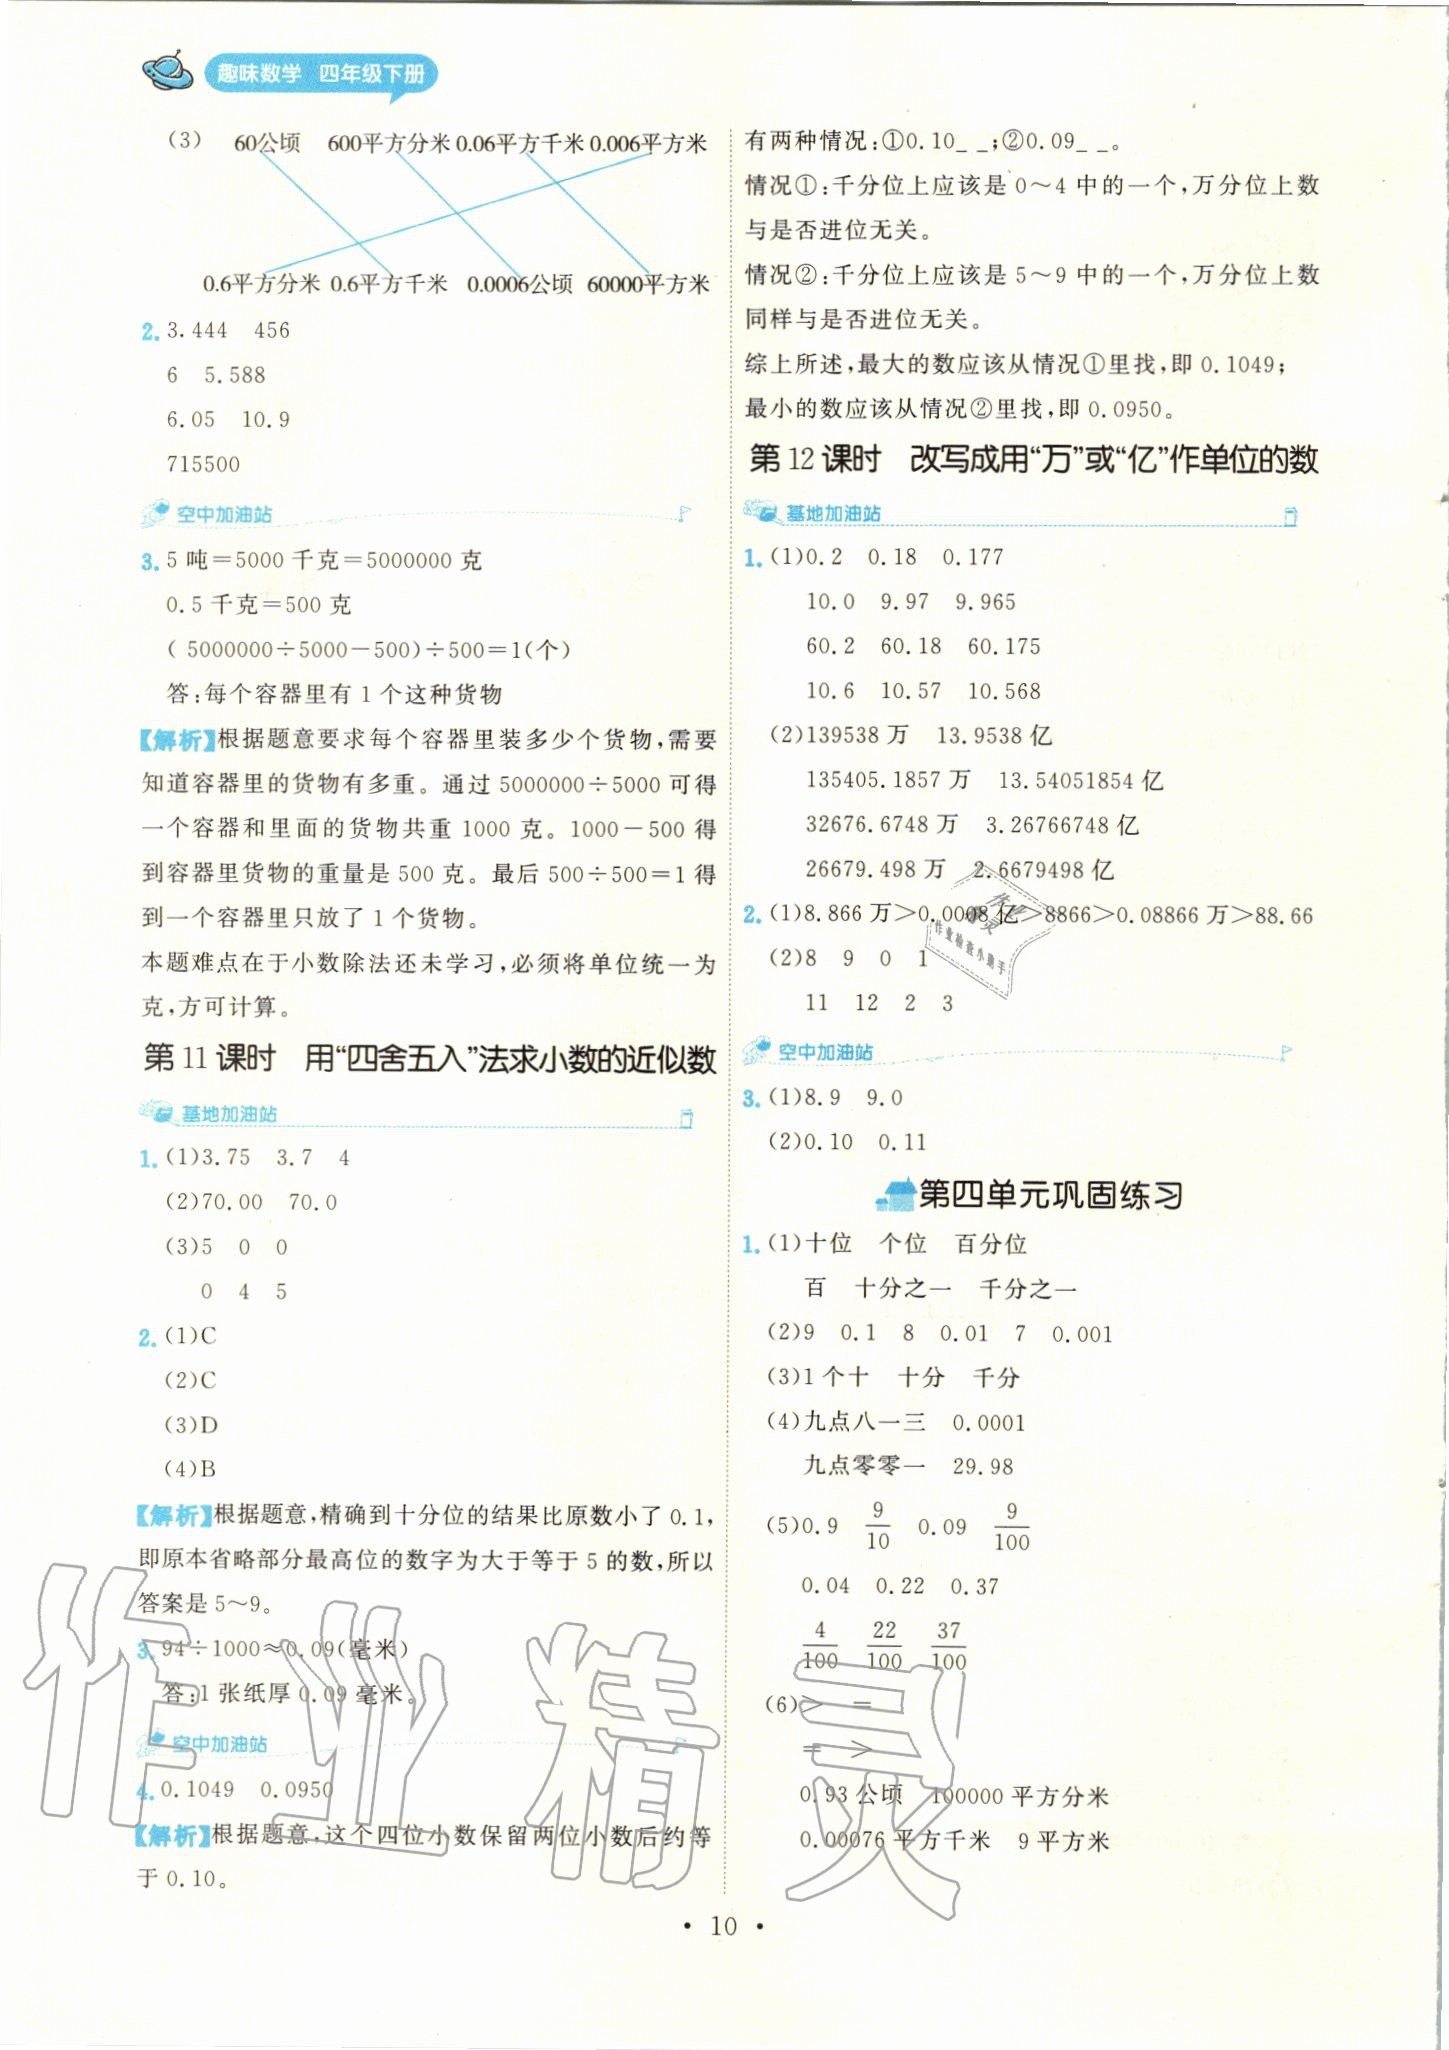 趣味数学 四年级下册
(3) 60公顷 600平方分米 0.06平方千米 0.006平方米
0.6平方分米 0.6平方千米 0.0006公顷 60000平方米
2. 3.444 456
6 5.588
6.05 10.9
715500
空中加油站
3. 5 吨=5000 千克=5000000 克
0.5 千克=500 克
( 5000000÷5000-500)÷500=1(个)
答:每个容器里有 1 个这种货物
【解析】根据题意要求每个容器里装多少个货物,需要
知道容器里的货物有多重。通过 5000000÷5000 可得
一个容器和里面的货物共重 1000 克。1000-500 得
到容器里货物的重量是 500 克。最后 500÷500=1 得
到一个容器里只放了 1 个货物。
本题难点在于小数除法还未学习,必须将单位统一为
克,方可计算。
第 11 课时 用“四舍五入”法求小数的近似数
基地加油站
1. (1)3.75 3.7 4
(2)70.00 70.0
(3)5 0 0
0 4 5
2. (1)C
(2)C
(3)D
(4)B
【解析】根据题意,精确到十分位的结果比原数小了 0.1,
即原本省略部分最高位的数字为大于等于 5 的数,所以
答案是 5～9。
3. 94÷1000≈0.09(毫米)
答:1 张纸厚 0.09 毫米。
空中加油站
4. 0.1049 0.0950
【解析】根据题意,这个四位小数保留两位小数后约等
于 0.10。
有两种情况:①0.10_ _;②0.09_ _。
情况①:千分位上应该是 0～4 中的一个,万分位上数
与是否进位无关。
情况②:千分位上应该是 5～9 中的一个,万分位上数
同样与是否进位无关。
综上所述,最大的数应该从情况①里找,即 0.1049;
最小的数应该从情况②里找,即 0.0950。
第 12 课时 改写成用“万”或“亿”作单位的数
基地加油站
1. (1)0.2 0.18 0.177
10.0 9.97 9.965
60.2 60.18 60.175
10.6 10.57 10.568
(2)139538 万 13.9538 亿
135405.1857 万 13.54051854 亿
32676.6748 万 3.26766748 亿
26679.498 万 2.6679498 亿
2. (1)8.866 万>0.0008 亿>8866>0.08866 万>88.66
(2)8 9 0 1
11 12 2 3
作业精灵
作业检查小助手
空中加油站
3. (1)8.9 9.0
(2)0.10 0.11
第四单元巩固练习
1. (1)十位 个位 百分位
百 十分之一 千分之一
(2)9 0.1 8 0.01 7 0.001
(3)1个十 十分 千分
(4)九点八一三 0.0001
九点零零一 29.98
(5)0.9 9/10 0.09 9/100
0.04 0.22 0.37
4/100 22/100 37/100
(6)> =
= >
0.93 公顷 100000 平方分米
0.00076 平方千米 9 平方米
作业精灵
· 10 ·